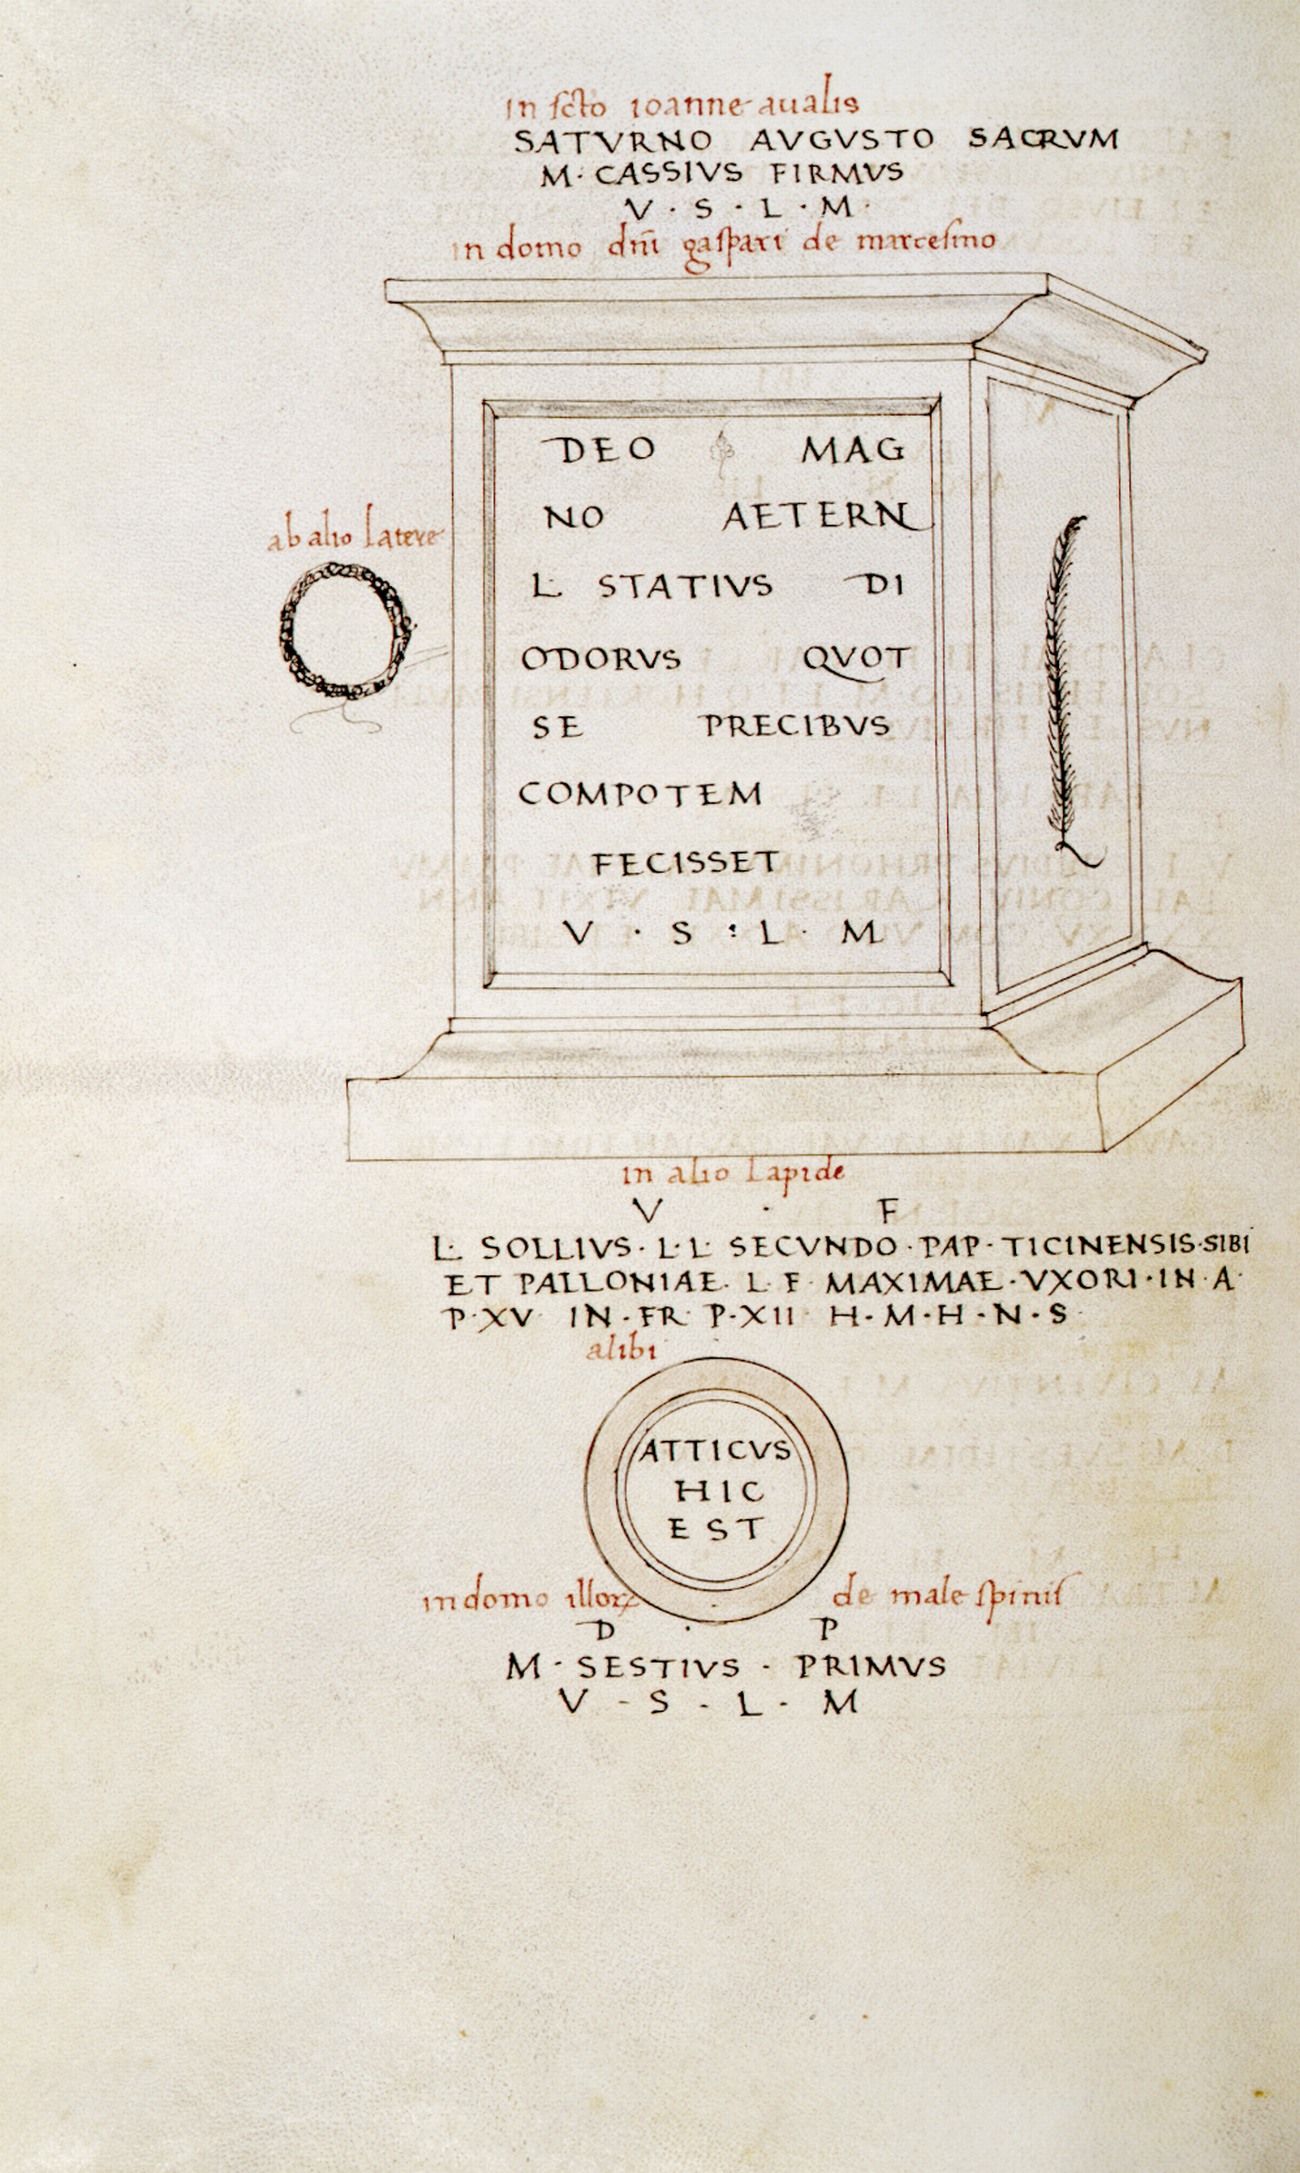 in scto ioanne aualis
SATVRNO AVGVSTO SACRVM
M · CASSIVS FIRMVS
V · S · L · M ·
in domo dñi gaspari de marcesino
DEO MAG
NO AETERN
ab alio latere
L · STATIVS DI
ODORVS QVOT
SE PRECIBVS
COMPOTEM
FECISSET
V · S · L · M
in alio lapide
V · F
L · SOLLIVS · L · L · SECVNDO · PAP · TICINENSIS · SIBI
ET PALLONIAE · L · F · MAXIMAE · VXORI · IN · A ·
P · XV IN · FR · P · XII H · M · H · N · S ·
alibi
ATTICVS
HIC
EST
in domo illoꝝ de male spinis
D · P
M · SESTIVS · PRIMVS
V · S · L · M